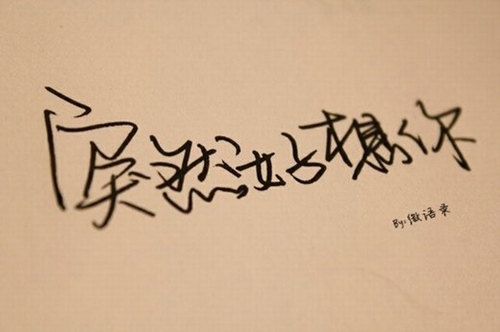 突然好想你
By:微语录